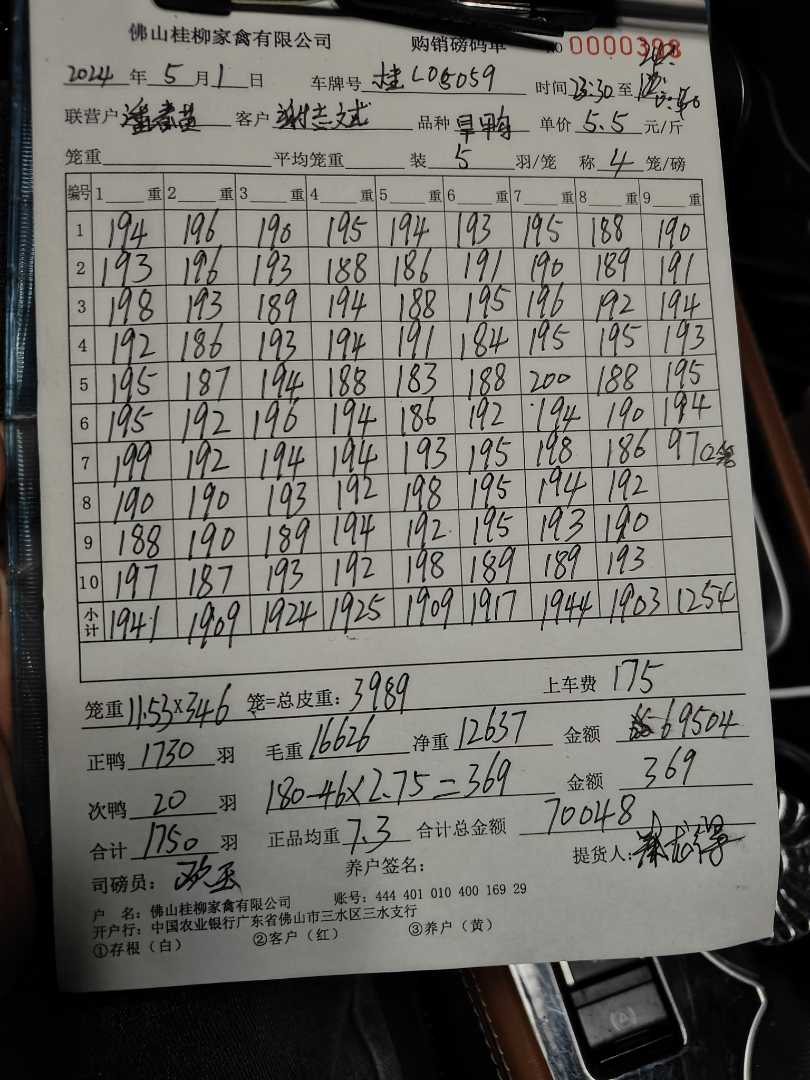 佛山桂柳家禽有限公司 购销磅码单 NO 0000398
2024 年 5 月 1 日 车牌号 桂L05059 时间 23:30 至
联营户 潘春黄 客户 谢志文 品种 旱鸭 单价 5.5 元/斤
笼重 平均笼重 装 5 羽/笼 称 4 笼/磅
编号 1 重 2 重 3 重 4 重 5 重 6 重 7 重 8 重 9 重
1 194 196 190 195 194 193 195 188 190
2 193 196 193 188 186 191 190 189 191
3 198 193 189 194 188 195 196 192 194
4 192 186 193 194 191 184 195 195 193
5 195 187 194 188 183 188 200 188 195
6 195 192 196 194 186 192 194 190 194
7 199 192 194 194 193 195 198 186 97 (2笼
8 190 190 193 192 198 195 194 192
9 188 190 189 194 192 195 193 190
10 197 187 193 192 198 189 189 193
小计 1941 1909 1924 1925 1909 1917 1944 1903 1254
笼重 11.53×346 笼=总皮重: 3989 上车费 175
正鸭 1730 羽 毛重 16626 净重 12637 金额 69504
次鸭 20 羽 180-46×2.75=369 金额 369
合计 1750 羽 正品均重 7.3 合计总金额 70048
司磅员: 养户签名: 提货人:
户 名: 佛山桂柳家禽有限公司 账号: 444 401 010 400 169 29
开户行: 中国农业银行广东省佛山市三水区三水支行
①存根（白） ②客户（红） ③养户（黄）